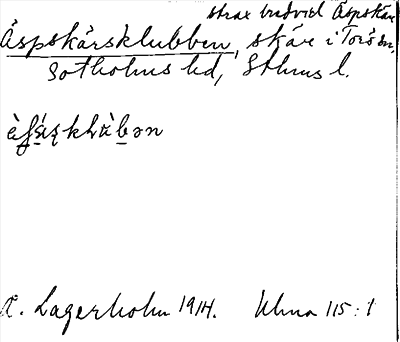 strax bredvid Äspskär
Äspskärsklubben, skär i Torö sn,
Sotholms hd, Sthms l.
Lagerholm 1914. Uhma 115:1